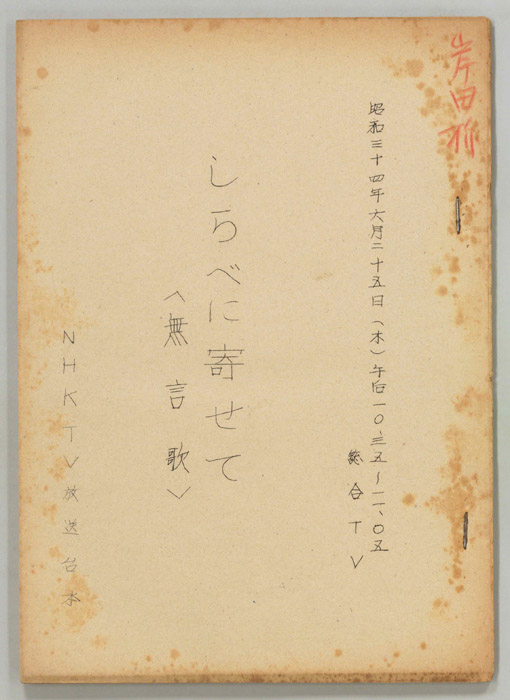 岸田
昭和三十四年六月二十五日(木)午后一〇、三五~一一、〇五
総合TV
しらべに寄せて
<無言歌>
NHKTV放送台本